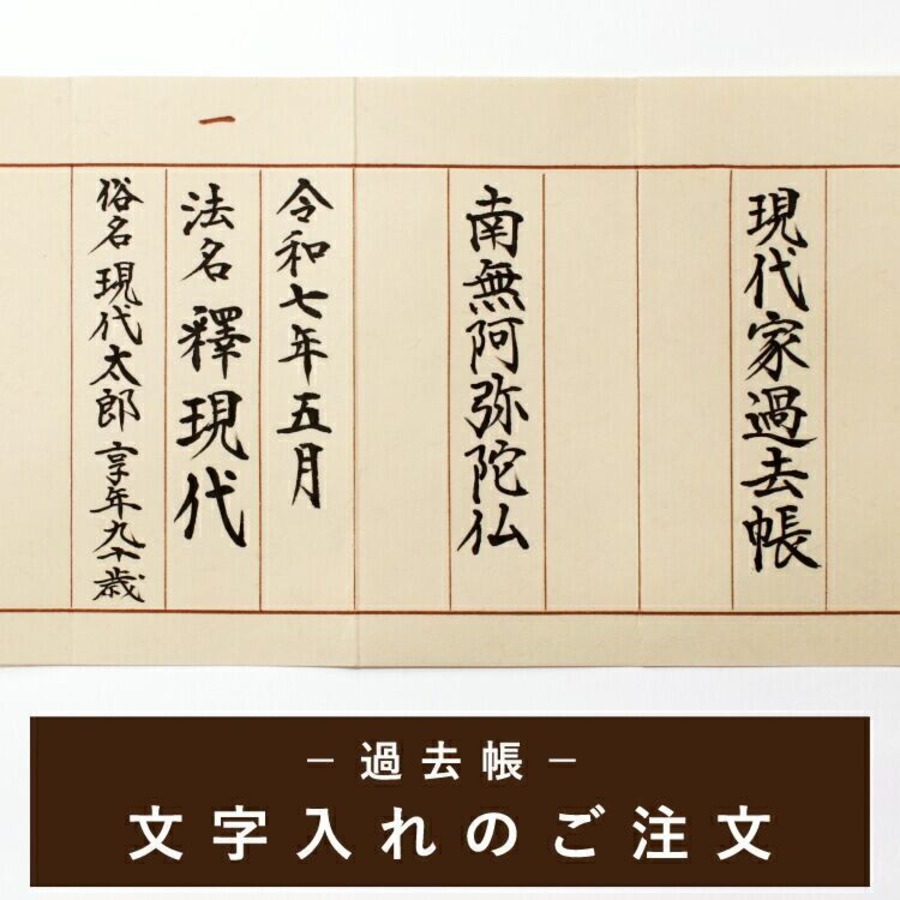 現代家過去帳
南無阿弥陀仏
一
令和七年五月
法名 釋現代
俗名 現代太郎 享年九十歳
－過去帳－
文字入れのご注文